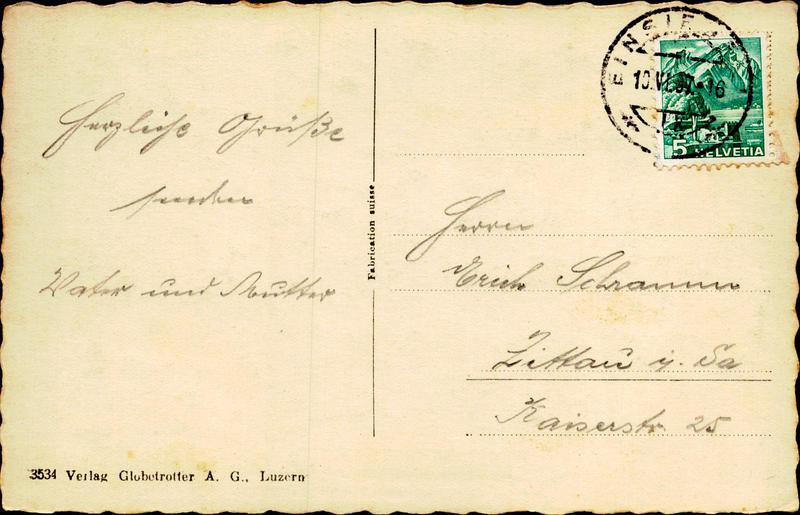 Herzliche Grüße
senden
Vater und Mutter
3534 Verlag Globetrotter A. G., Luzern
Fabrication suisse
10.VI.37-16
5 HELVETIA
Herrn
Erich Schramm
Zittau i. Sa
Kaiserstr. 25